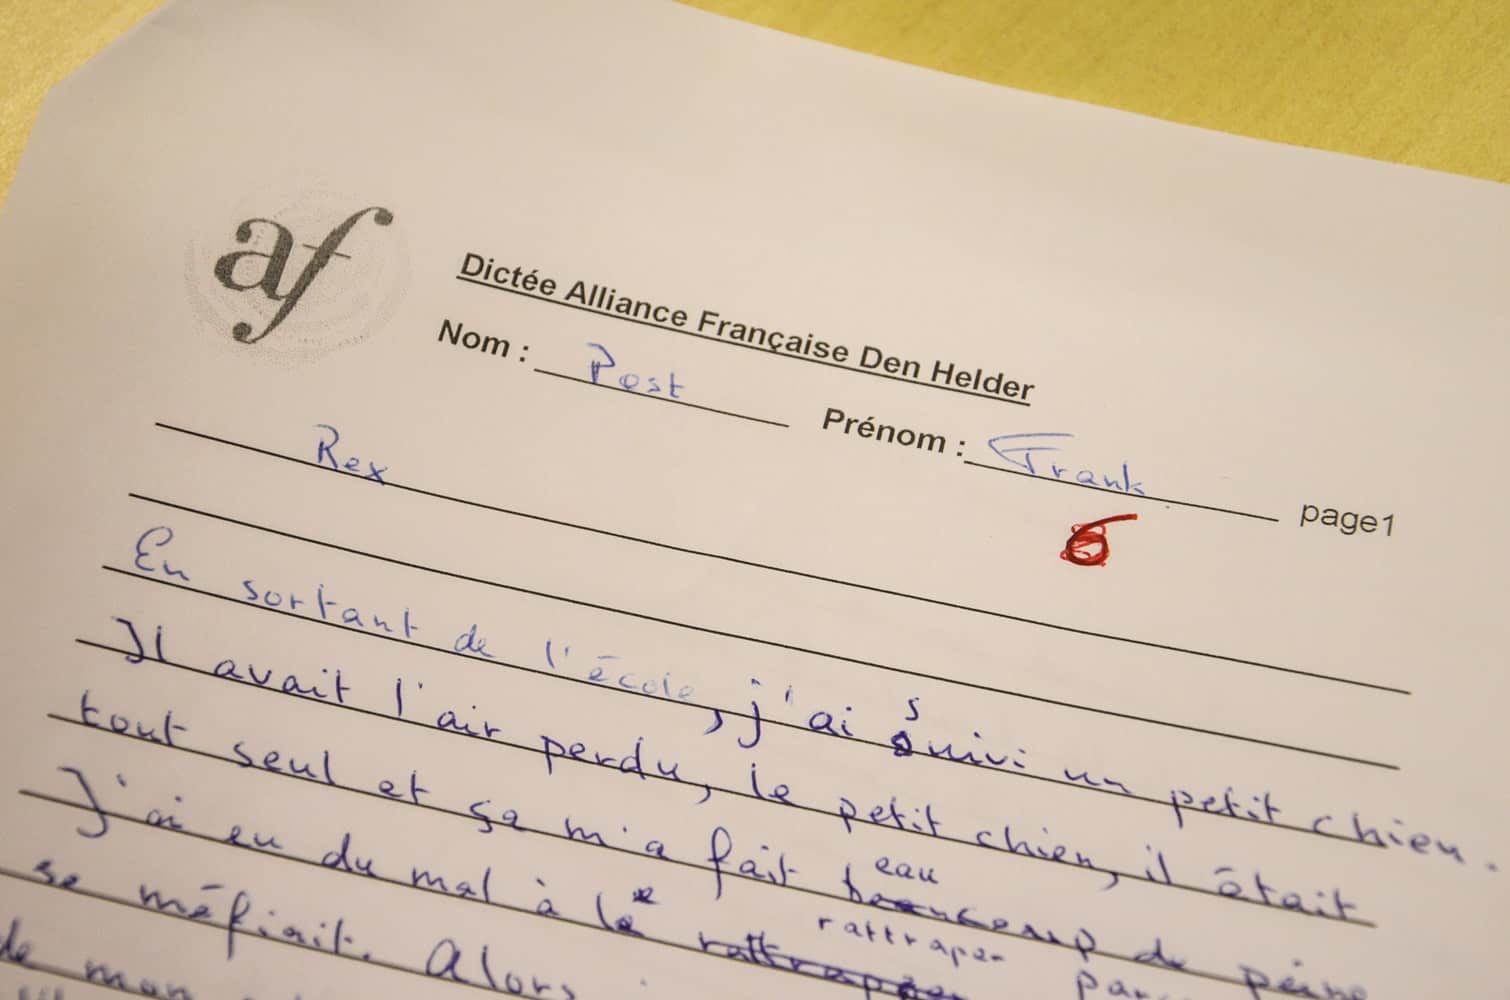 af
Dictée Alliance Française Den Helder
Nom : Post Prénom : Frank page1
Rex
6
En sortant de l'école, j'ai suivi un petit chien.
Il avait l'air perdu, le petit chien, il était
tout seul et ça m'a fait beaucoup de peine
eau
J'ai eu du mal à le rattraper
rattraper
se méfiait. Alors
de mon